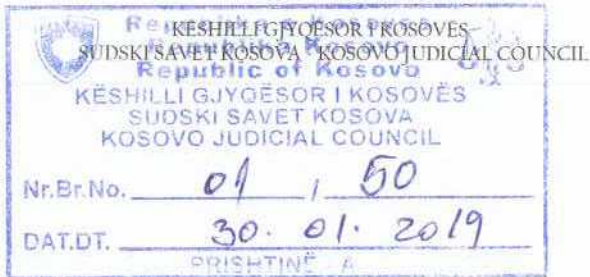 Republika e Kosovës
KËSHILLI GJYQËSOR I KOSOVËS
Republika Kosovo
SUDSKI SAVET KOSOVA KOSOVO JUDICIAL COUNCIL
Republic of Kosovo
KËSHILLI GJYQËSOR I KOSOVËS
SUDSKI SAVET KOSOVA
KOSOVO JUDICIAL COUNCIL
Nr.Br.No. 01 / 50
DAT.DT. 30. 01. 2019
PRISHTINË - A